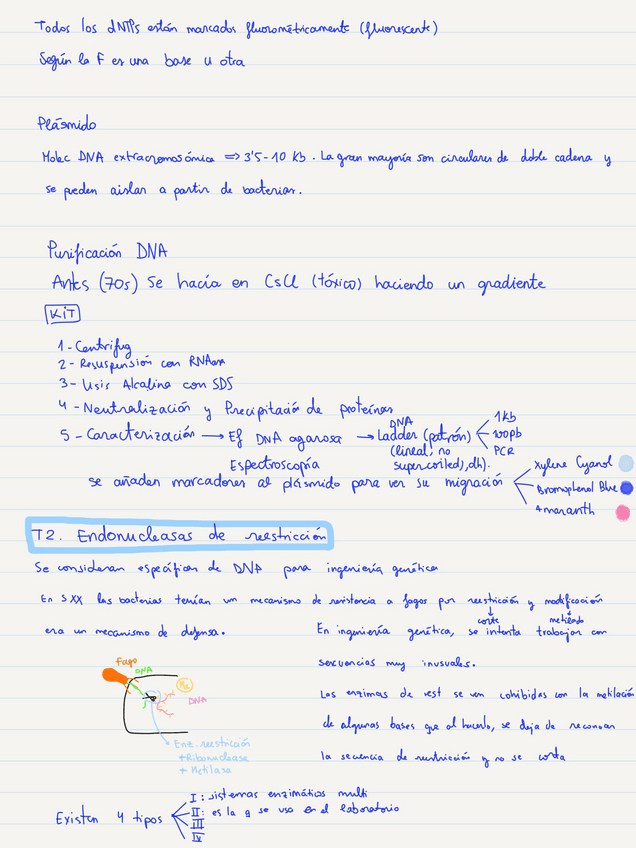 Todos los dNTPs están marcados fluorométricamente (fluorescente)
Según la F es una base u otra
Plásmido
Molec DNA extracromosómica => 3'5-10 Kb. La gran mayoría son circulares de doble cadena y
se pueden aislar a partir de bacterias.
Purificación DNA
Antes (70s) Se hacía en CsCl (tóxico) haciendo un gradiente
KIT
1 - Centrifug
2 - Resuspensión con RNAasa
3 - Lisis Alcalina con SDS
4 - Neutralización y Precipitació de proteínas
5 - Caracterización → Ef DNA agarosa → DNA Ladder (patrón)
(lineal, no
supercoiled), dh).
1Kb
100pb
PCR
Espectroscopía
se añaden marcadores al plásmido para ver su migración
Xylene Cyanol
Bromophenol Blue
Amaranth
T2. Endonucleasas de reestricción
Se consideran específicas de DNA para ingeniería genética
En SXX las bacterias tenían un mecanismo de resistencia a fagos por reestricción y modificación
corte
metilado
era un mecanismo de defensa.
En ingeniería genética, se intenta trabajar con
secuencias muy inusuales.
Las enzimas de rest se ven cohibidas con la metilación
de algunas bases que al hacerlo, se deja de reconocer
la secuencia de restricción y no se corta
Fago
DNA
DNA
Enz. reestricción
+ Ribonucleasa
+ Metilasa
Existen 4 tipos
I: sistemas enzimáticos multi
II: es la q se usa en el laboratorio
III
IV